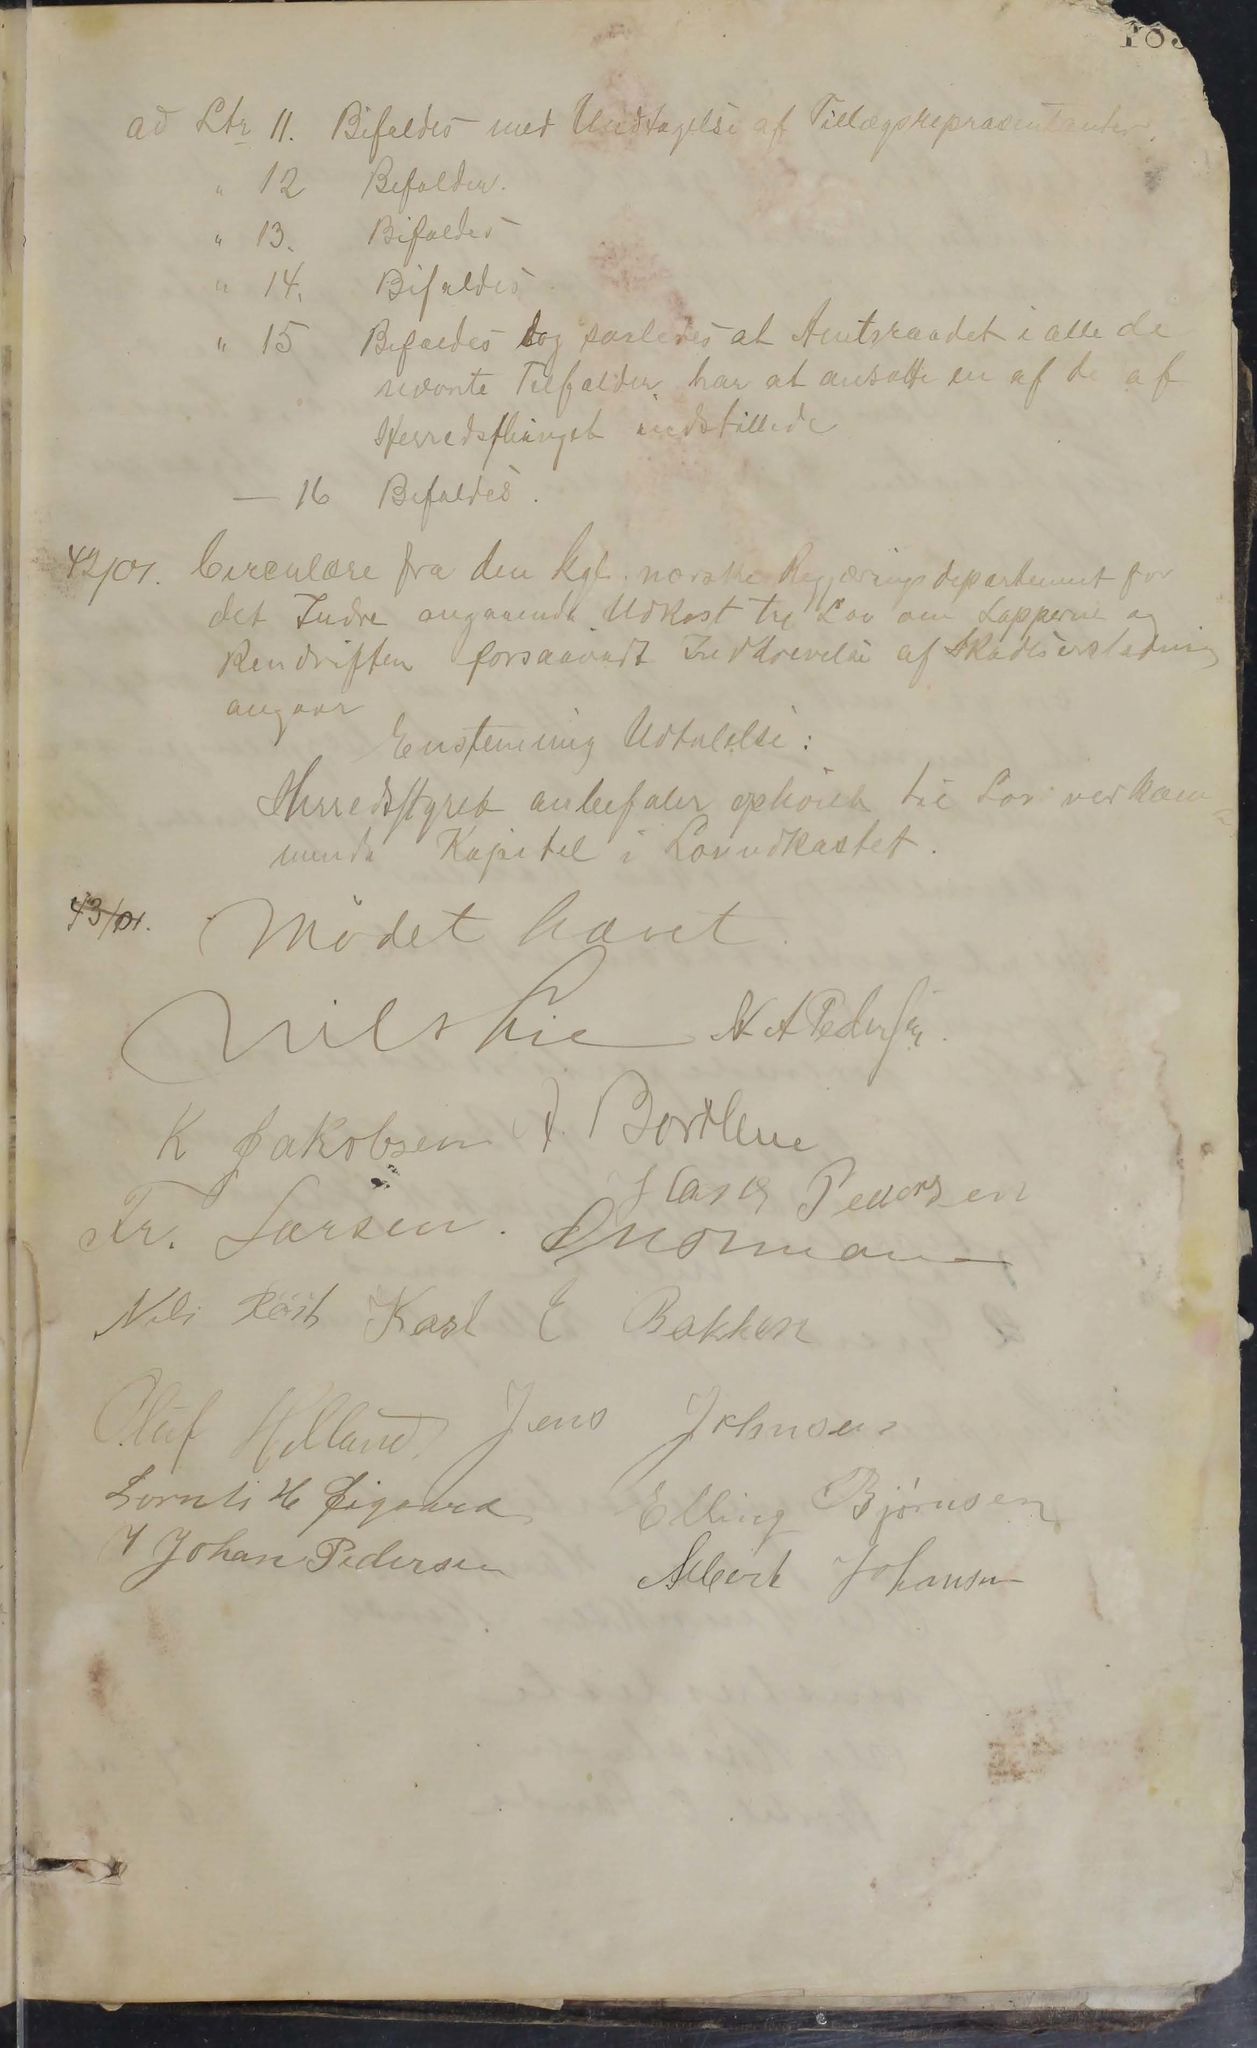 183
ad Ltr 11. Bifaldes med Undtagelse af Tillægsrepræsentanter.
" 12 Bifaldes.
" 13. Bifaldes
" 14. Bifaldes
" 15 Bifaldes dog saaledes at Amtsraadet i alle de
nævnte Tilfælder har at ansætte en af de af
Herredsthinget indstillede
— 16 Bifaldes.
42/01. Circulære fra den kgl. norske Regjerings departement for
det Indre angaaende Udkast til Lov om Lapperne og
Rendriften forsaavidt Inddrivelse af Skadeserstatning
angaar
Enstemmig Udtalelse:
Herredsstyret anbefaler ophöiet til Lov vedkom
mende Kapitel i Lovudkastet.
43/01. Mödet hævet.
Nils Lie N A Pedersen.
K Jakobsen J. Bordlene
Hans Pedersen
Fr. Larsen. Normann
Nils Röst Karl E Bakken
Oluf Helland Jens Johnsen
Cornelis H Øigaard Elling Bjørnsen
Johan Pedersen Albert Johansen